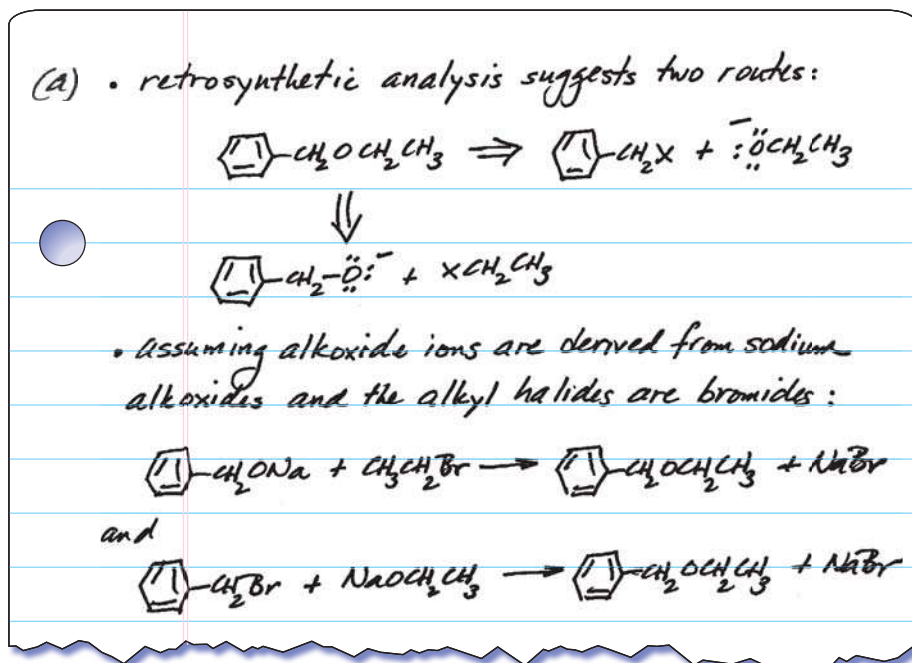 (a) • retrosynthetic analysis suggests two routes:
-CH2OCH2CH3 ⇒ -CH2X + :ÖCH2CH3 −
⇓
-CH2-Ö:− + XCH2CH3
• assuming alkoxide ions are derived from sodium
alkoxides and the alkyl halides are bromides:
-CH2ONa + CH3CH2Br → -CH2OCH2CH3 + NaBr
and
-CH2Br + NaOCH2CH3 → -CH2OCH2CH3 + NaBr